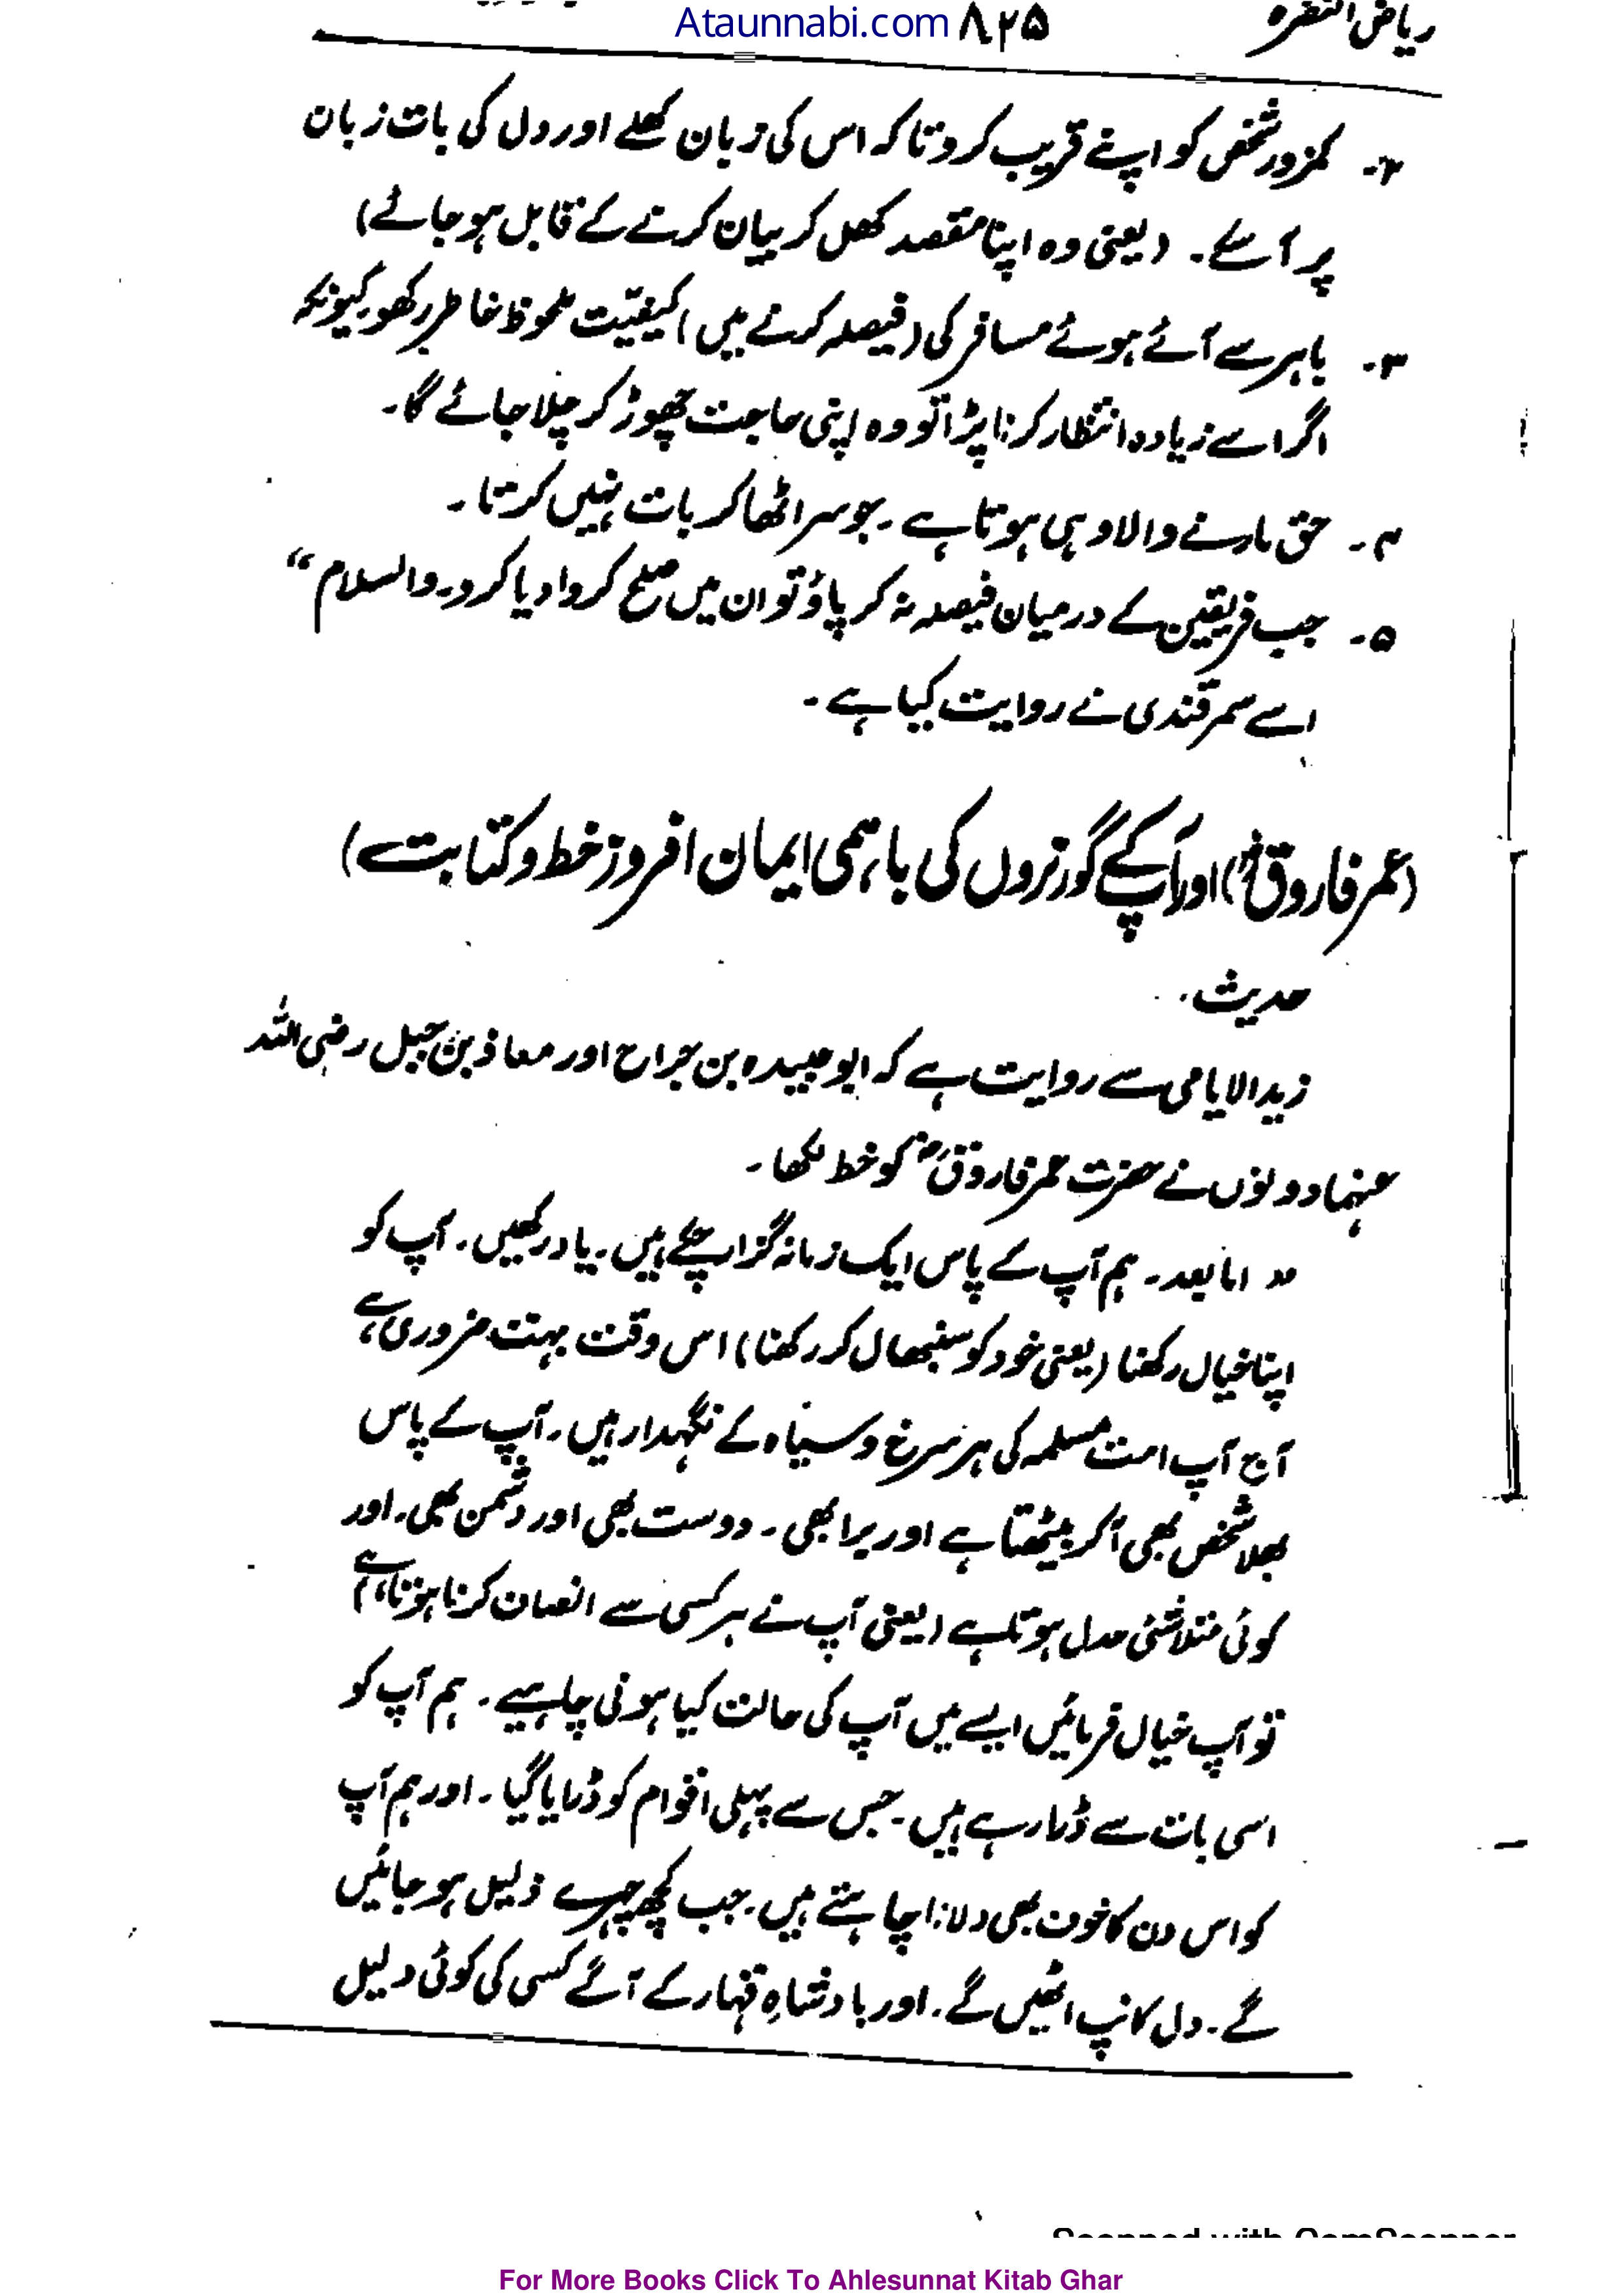 ریاض النضرہ
Ataunnabi.com ۸۲۵
۲۔ کمزور شخص کو اپنے قریب کرو تاکہ اس کی زبان کھلے اور دل کی بات زبان
پر آسکے۔ (یعنی وہ اپنا مقصد کھل کر بیان کرنے کے قابل ہو جائے)
۳۔ باہر سے آئے ہوئے مسافر کی (فیصلہ کرنے میں) کیفیّت ملحوظ خاطر رکھو۔ کیونکہ
اگر اسے زیادہ انتظار کرنا پڑا تو وہ اپنی حاجت چھوڑ کر چلا جائے گا۔
۴۔ حق مارنے والا وہی ہوتا ہے۔ جو سر اٹھا کر بات نہیں کرتا۔
۵۔ جب فریقین کے درمیان فیصلہ نہ کر پاؤ تو ان میں صلح کروا دیا کرو۔ والسلام“
اسے سمرقندی نے روایت کیا ہے۔
(عمر فاروقؓ) اور آپکے گورنروں کی باہمی ایمان افروز خط و کتابت)
حدیث۔
زید الایامی سے روایت ہے کہ ابو عبیدہ بن جراح اور معاذ بن جبل رضی اللہ
عنہما دونوں نے حضرت عمر فاروقؓ کو خط لکھا۔
” اما بعد۔ ہم آپ کے پاس ایک زمانہ گزار چکے ہیں۔ یاد رکھیں۔ آپ کو
اپنا خیال رکھنا (یعنی خود کو سنبھال کر رکھنا) اس وقت بہت ضروری ہے
آج آپ امت مسلمہ کی ہر سرخ و سیاہ کے نگہدار ہیں۔ آپ کے پاس
بھلا شخص بھی آکر بیٹھتا ہے اور برا بھی۔ دوست بھی اور دشمن بھی۔ اور
کوئی متلاشئ عدل ہوتا ہے (یعنی آپ نے ہر کسی سے انصاف کرنا ہوتا ہے)
تو آپ خیال فرمائیں ایسے میں آپ کی حالت کیا ہونی چاہیے۔ ہم آپ کو
اسی بات سے ڈرا رہے ہیں۔ جس سے پہلی اقوام کو ڈرایا گیا۔ اور ہم آپ
کو اس دن کا خوف بھی دلانا چاہتے ہیں۔ جب کچھ چہرے ذلیل ہو جائیں
گے۔ دل کانپ اٹھیں گے۔ اور بادشاہِ قہار کے آگے کسی کی کوئی دلیل
Scanned with CamScanner
For More Books Click To Ahlesunnat Kitab Ghar